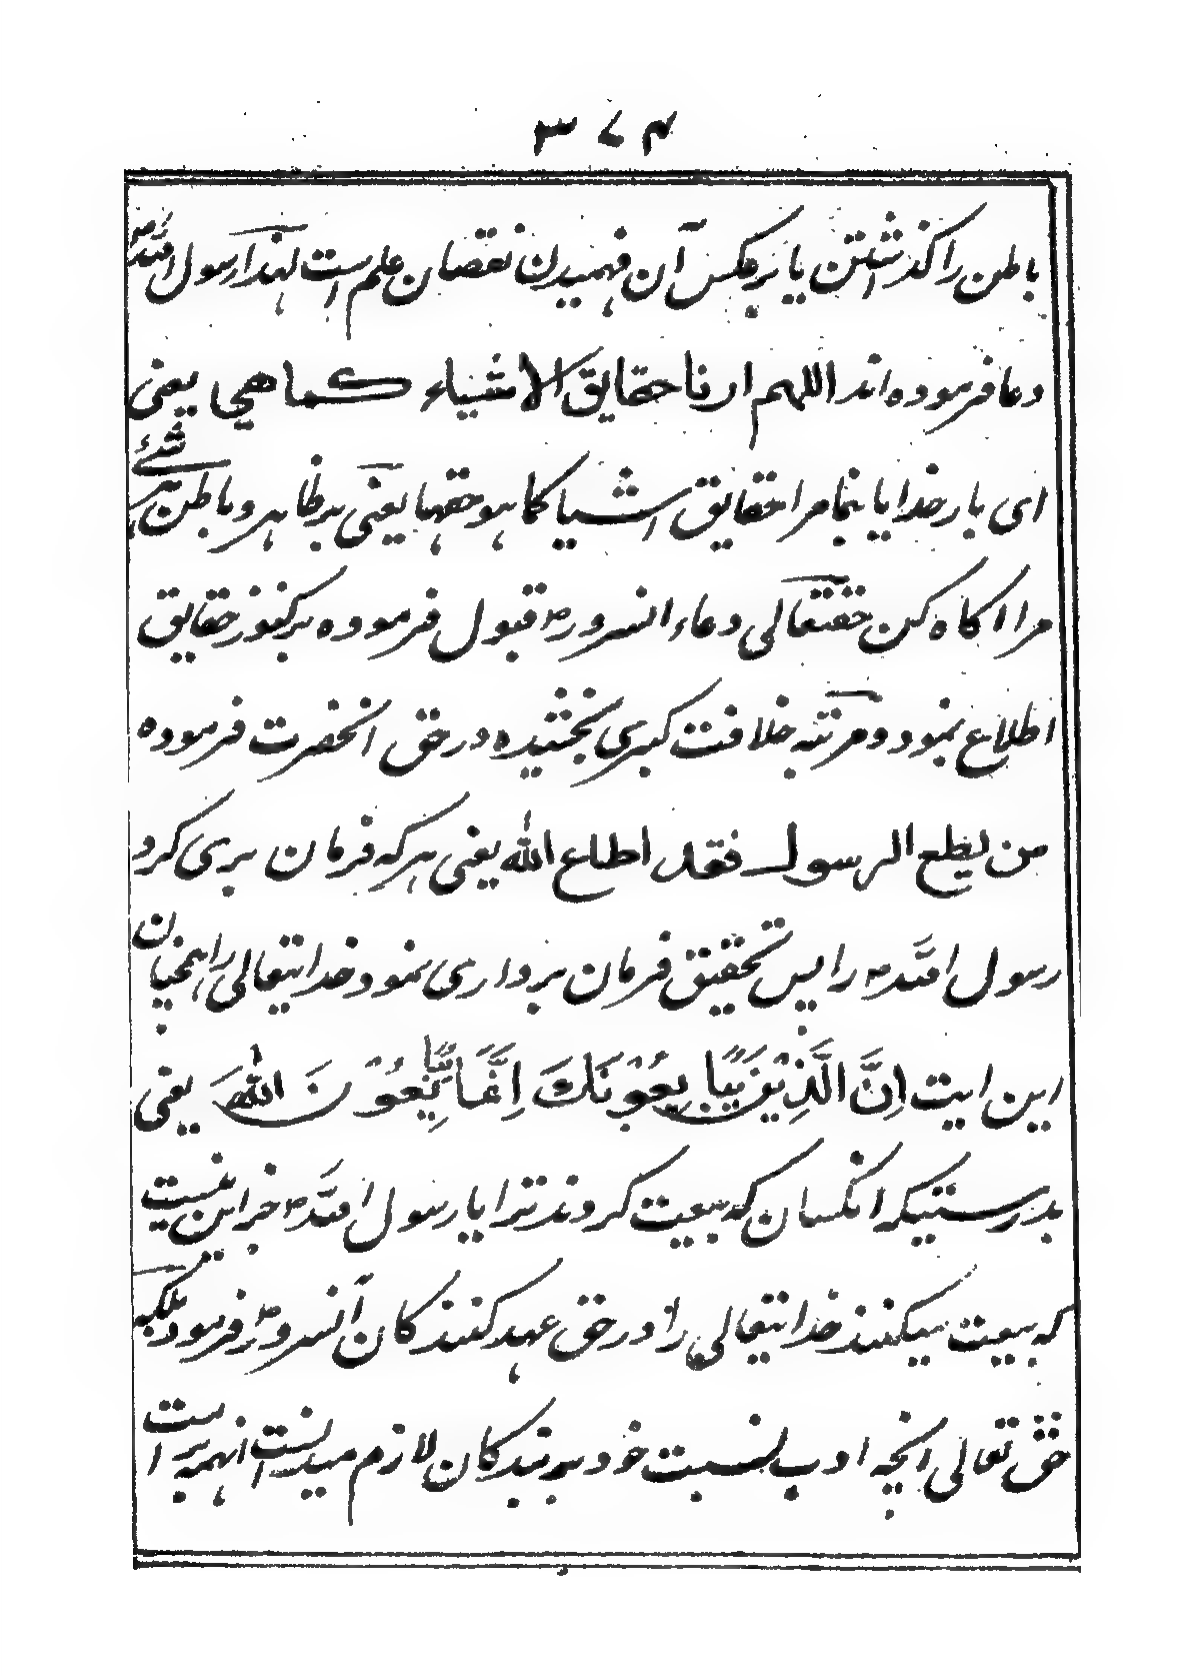 ۳۷۴
باطن را گذاشتن یا برعکس آن فهمیدن نقصان علم است لهذا رسول الله ص
دعا فرموده اند اللهم ارنا حقایق الاشیاء كما هي یعنی
ای بار خدایا بنما مرا حقایق اشیا کما هو حقها یعنی بر ظاهر و باطن هر شئے
مرا اکاه کن حقتعالی دعاء انسرور ص قبول فرموده بر کنوز حقایق
اطلاع نمود و مرتبه خلافت کبری بخشیده در حق انحضرت فرموده
من یطع الرسول فقد اطاع الله یعنی هر که فرمان بری کرد
رسول الله ص را پس تحقیق فرمان برداری نمود خدایتعالی را همچنان
این ایت اِنَّ الَّذِیْنَ یُبَایِعُوْنَكَ اِنَّمَا یُبَایِعُوْنَ اللهَ یعنی
بدرستیکه انکسان که بیعت کردند ترا یا رسول الله ص جز این نیست
که بیعت میکنند خدایتعالی را و در حق عهد کنندکان آنسرور ص فرمود بلکه
حق تعالی انچه ادب نسبت خود بر بندکان لازم میدانست انهمه بر امت